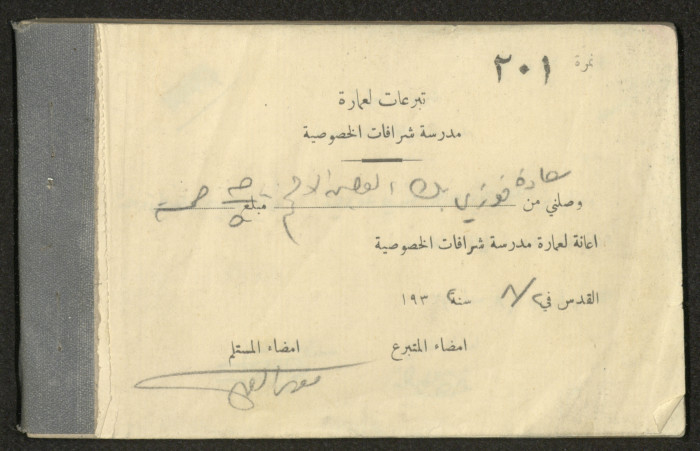 نمرة ٢٠١
تبرعات لعمارة
مدرسة شرافات الخصوصية
وصلني من سعادة فوزي بك مبلغ خمسة
اعانة لعمارة مدرسة شرافات الخصوصية
القدس في ٨/ سنة ١٩٣
امضاء المتبرع امضاء المستلم